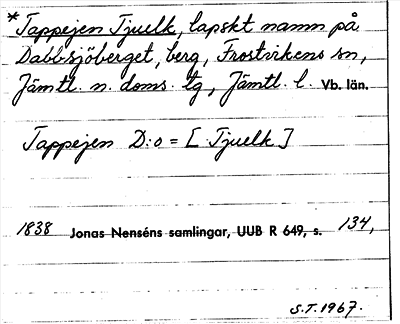 *Tappejen Tjuelk, lapskt namn på
Dabbsjöberget, berg, Frostvikens sn,
Jämtl. n. doms. lg, Jämtl. l. Vb. län.
Tappejen D:o = [ Tjuelk ]
1838 Jonas Nenséns samlingar, UUB R 649, s. 134,
S.T. 1967.